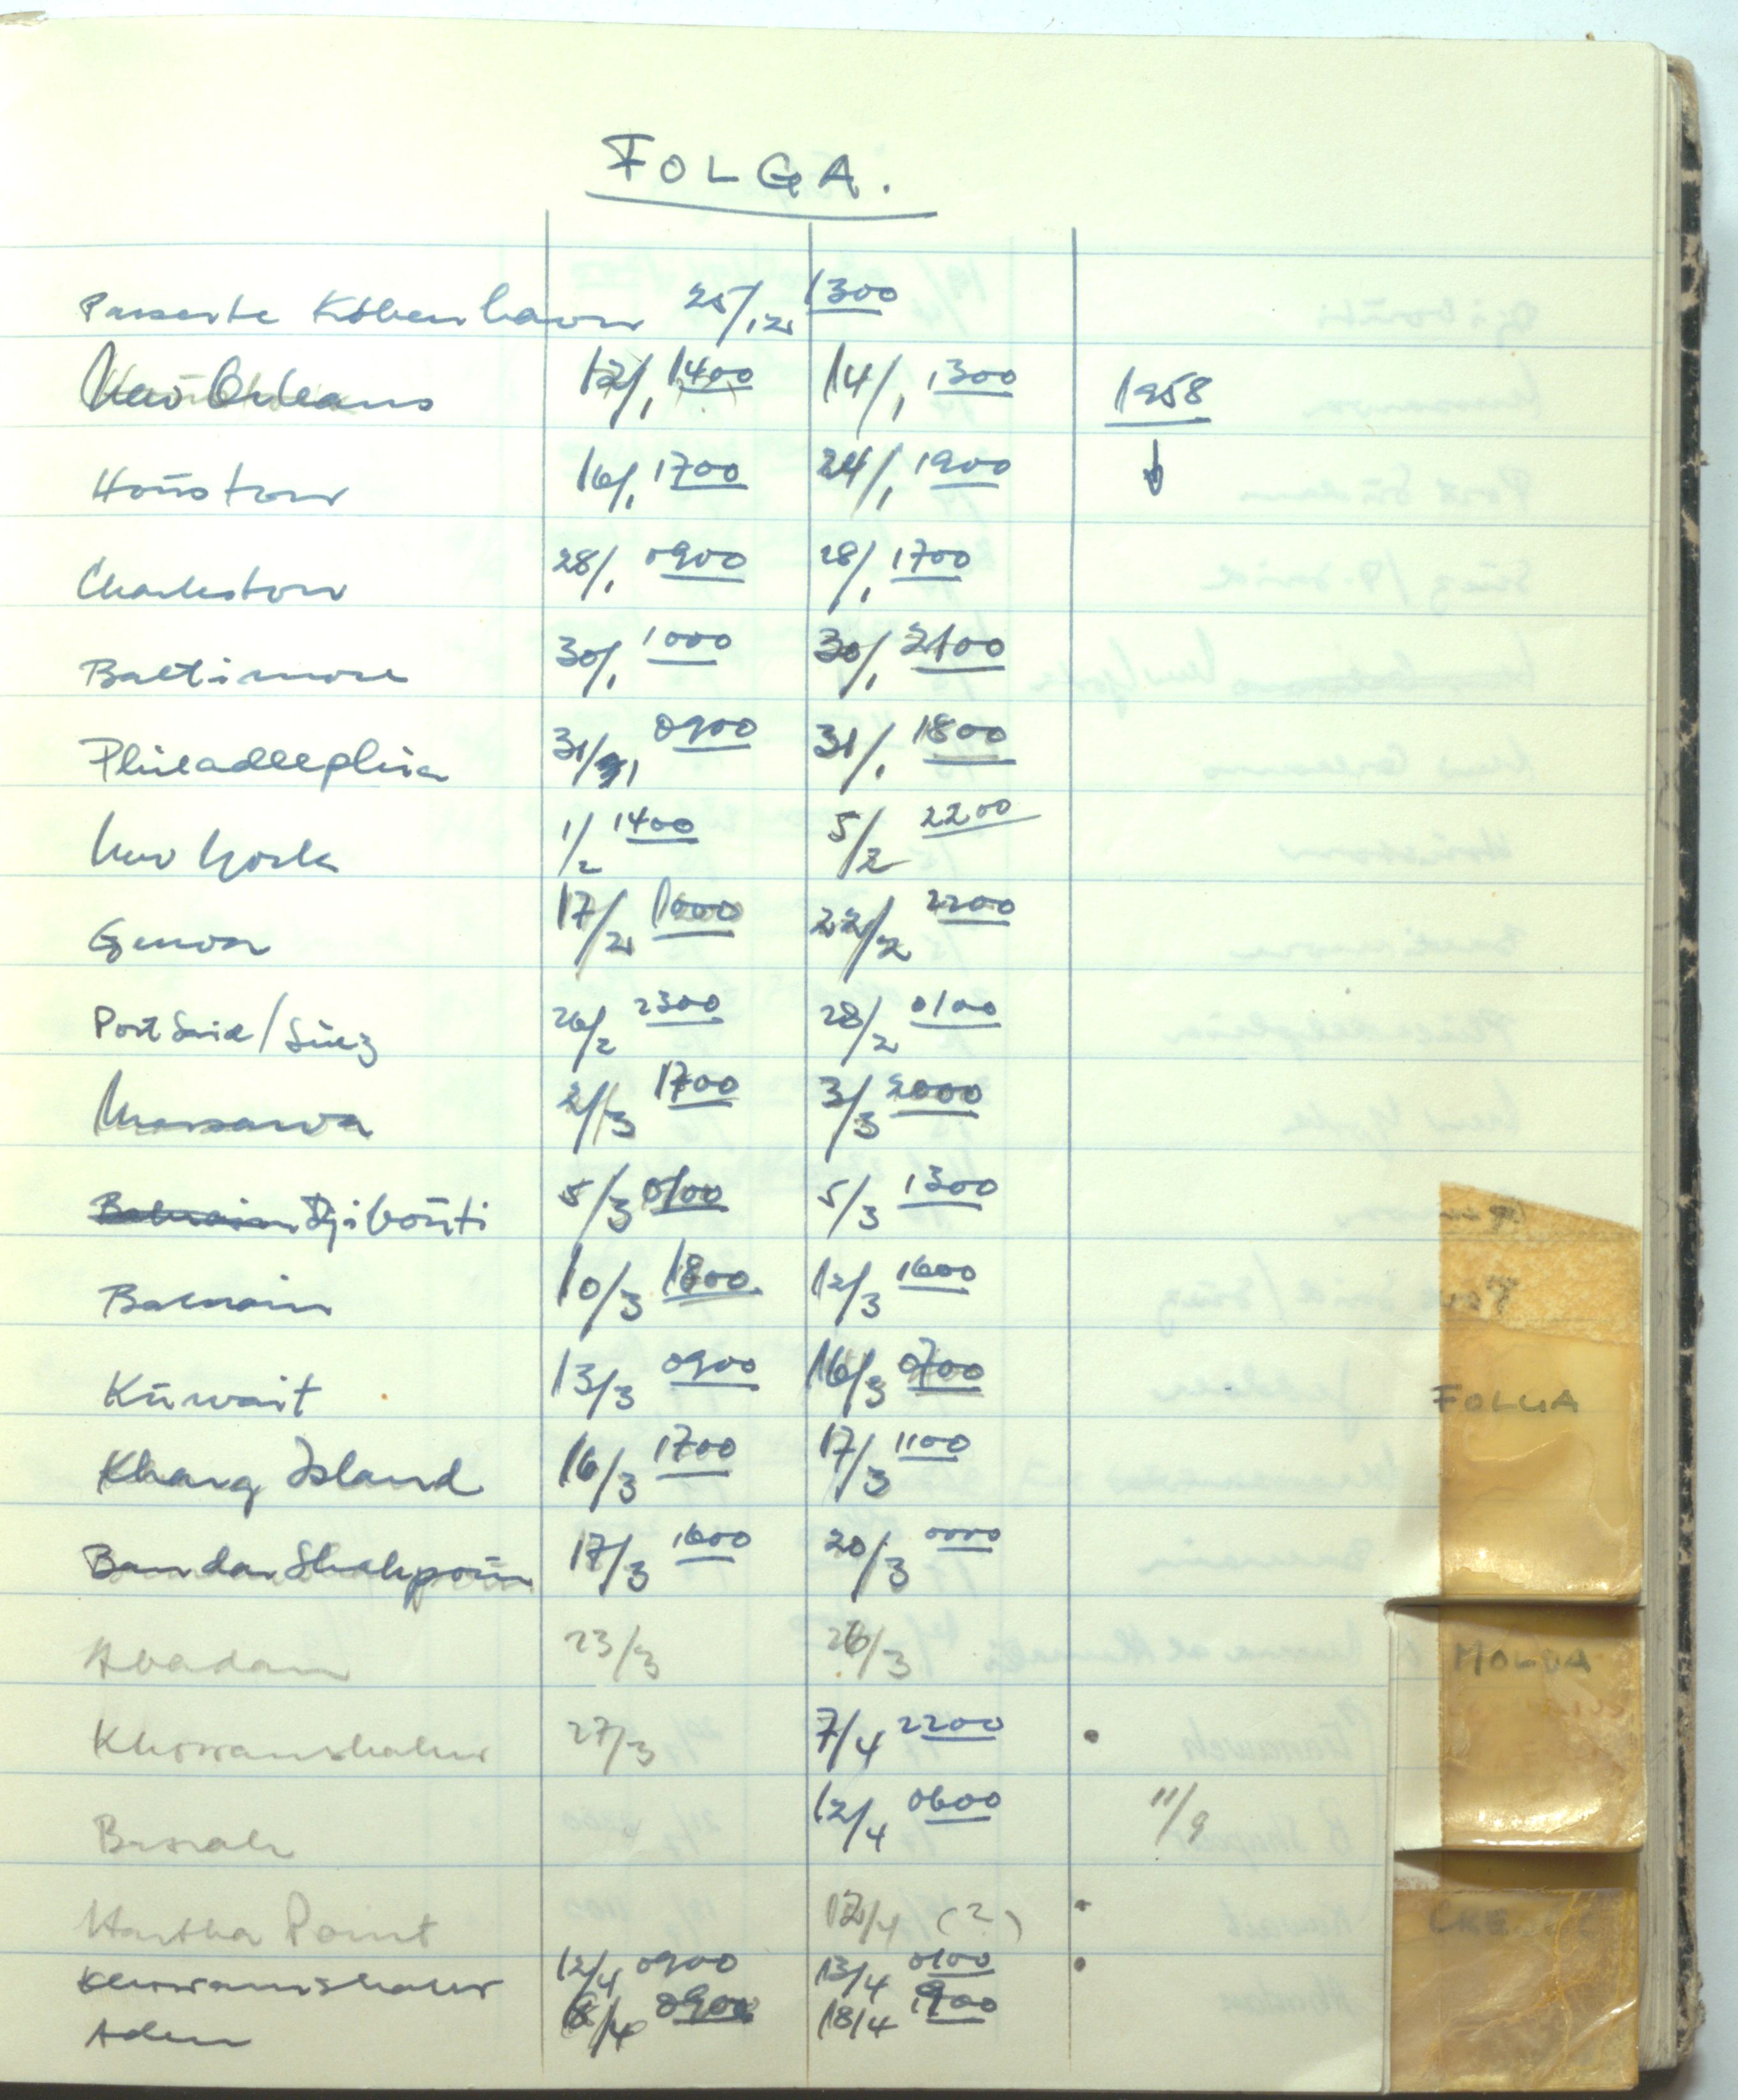 FOLGA.
Passerte Köbenhavn 25/12 1300
New Orleans 12/1 1400 14/1 1300 1958
Houston 16/1 1700 24/1 1900 ↓
Charleston 28/1 0900 28/1 1700
Baltimore 30/1 1000 30/1 2100
Philiadelphia 31/1 0900 31/1 1800
New York 1/2 1400 5/2 2200
Genova 17/2 1000 22/2 2200
Port Said/Suez 26/2 2300 28/2 0100
Massawa 2/3 1700 3/3 2000
Bahrain Djibouti 5/3 0100 5/3 1300
Bahrain 10/3 1800 12/3 1600
Kuwait 13/3 0900 16/3 0700
FOLGA
Kharg Island 16/3 1700 17/3 1100
Bandar Shahpour 17/3 1600 20/3 0000
Abadan 23/3 26/3
HOLDA
Khorramshahr 27/3 7/4 2200 •
Basrah 12/4 0600 11/9
Hartha Point 12/4 (?) •
Khorramshahr 12/4 0900 13/4 0100 •
Aden 18/4 0900 18/4 1900